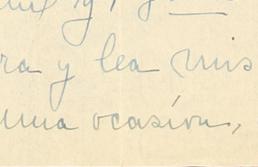 ra y lea mis
una ocasión,